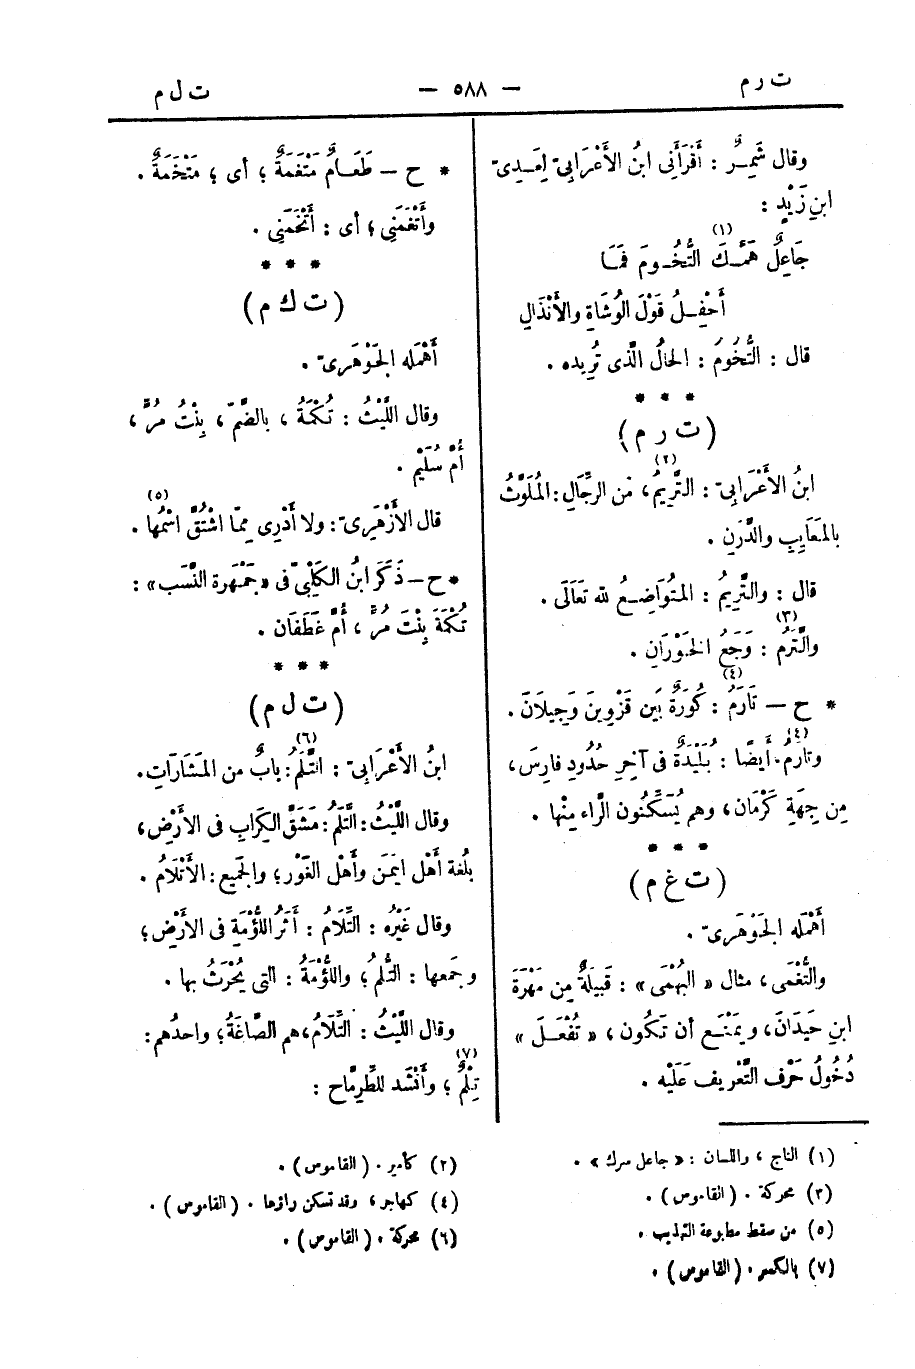 ت ر م
— ٥٨٨ —
ت ل م
وقال شَمِرٌ : أَقْرَأَنِى ابنُ الأَعْرَابِىّ لِعَدِىّ
ابنِ زَيْدٍ :
جَاعِلٌ هَمَّكَ التُّخُومَ فَمَا (١)
أَحْفِلُ قَوْلَ الوُشَاةِ والأَنْذَالِ
قال : التُّخُومُ : الحَالُ الَّذى تُرِيده .
* * *
( ت ر م )
ابنُ الأَعْرَابِىّ : التَّرِيمُ (٢) ، مَن الرِّجَالِ : المُلَوَّثُ
بالمَعَايِبِ والدَّرَنِ .
قال : والتَّرِيمُ : المتُوَاضِعُ لله تَعَالَى .
والتَّرَمُ (٣) : وَجَعُ الخَوْرَانِ .
* ح — تَارَمُ (٤) : كُورَةٌ بَين قَزْوِينَ وَجِيلَانَ .
وتَارَمُ (٤) أَيضًا : بُلَيْدَةٌ فى آخِرِ حُدُودِ فارِسَ ،
مِن جِهَةِ كَرْمَان ، وهم يُسَكِّنُون الرَّاء مِنْها .
* * *
( ت غ م )
أَهْمَله الجَوْهَرِىّ .
والتُّغْمَى ، مثال « البُهْمَى » : قَبِيلَةٌ مِن مَهْرَةَ
ابنِ حَيدَانَ ، ويَمْنَع أن تَكُون ، « تُفْعَلَ »
دُخُولُ حَرْف التَّعْريف عَلَيْه .
* ح — طَعَامٌ مَتْغَمَةٌ ؛ أى ؛ مَتْخَمَةٌ .
وأَتْغَمَنِى ؛ أى : أَتْخَمَنِى .
* * *
( ت ك م )
أَهْمَله الجَوْهَرِىّ .
وقال اللَّيْثُ : تُكْمَةُ ، بالضَّمّ ، بِنْتُ مُرٍّ ،
أُمُّ سُلَيْم .
قال الأَزْهَرِىّ : ولا أَدْرِى مِمّا اشْتُقَّ اسْمُها (٥) .
* ح — ذَكَرَ ابنُ الكَلْبِىّ فى « جَمْهَرة النَّسَب » :
تُكْمَةَ بِنْتَ مُرٍّ ، أُمَّ غَطَفَان .
* * *
( ت ل م )
ابنُ الأَعْرَابِىّ : التَّلَمُ (٦) : بابٌ من المَشَارَاتِ .
وقال اللَّيْثُ : التَّلَمُ : مَشَقُّ الكِرَابِ فى الأَرْضِ ،
بلُغة أَهْل اليَمَن وأَهْل الغَوْر ؛ والجَميع : الأَتْلَامُ .
وقال غَيْرُه : التِّلَامُ : أَثَرُ اللُّؤْمَةِ فى الأَرْضِ ؛
وجَمعها : التُّلُمُ ؛ واللُّؤْمَةُ : التى يُحْرَثُ بها .
وقال اللَّيْثُ : التِّلَامُ ، هم الصَّاغَةُ ؛ واحدُهم :
تِلْمٌ (٧) ؛ وأَنْشَد للطِّرِمَّاح :
(١) التاج ، واللسان : « جاعل سرك » .
(٢) كأمير . ( القاموس ) .
(٣) محركة . ( القاموس ) .
(٤) كهاجر ، وقد تسكن راؤها . ( القاموس ) .
(٥) من سقط مطبوعة التهذيب .
(٦) محركة . ( القاموس ) .
(٧) بالكسر . ( القاموس ) .